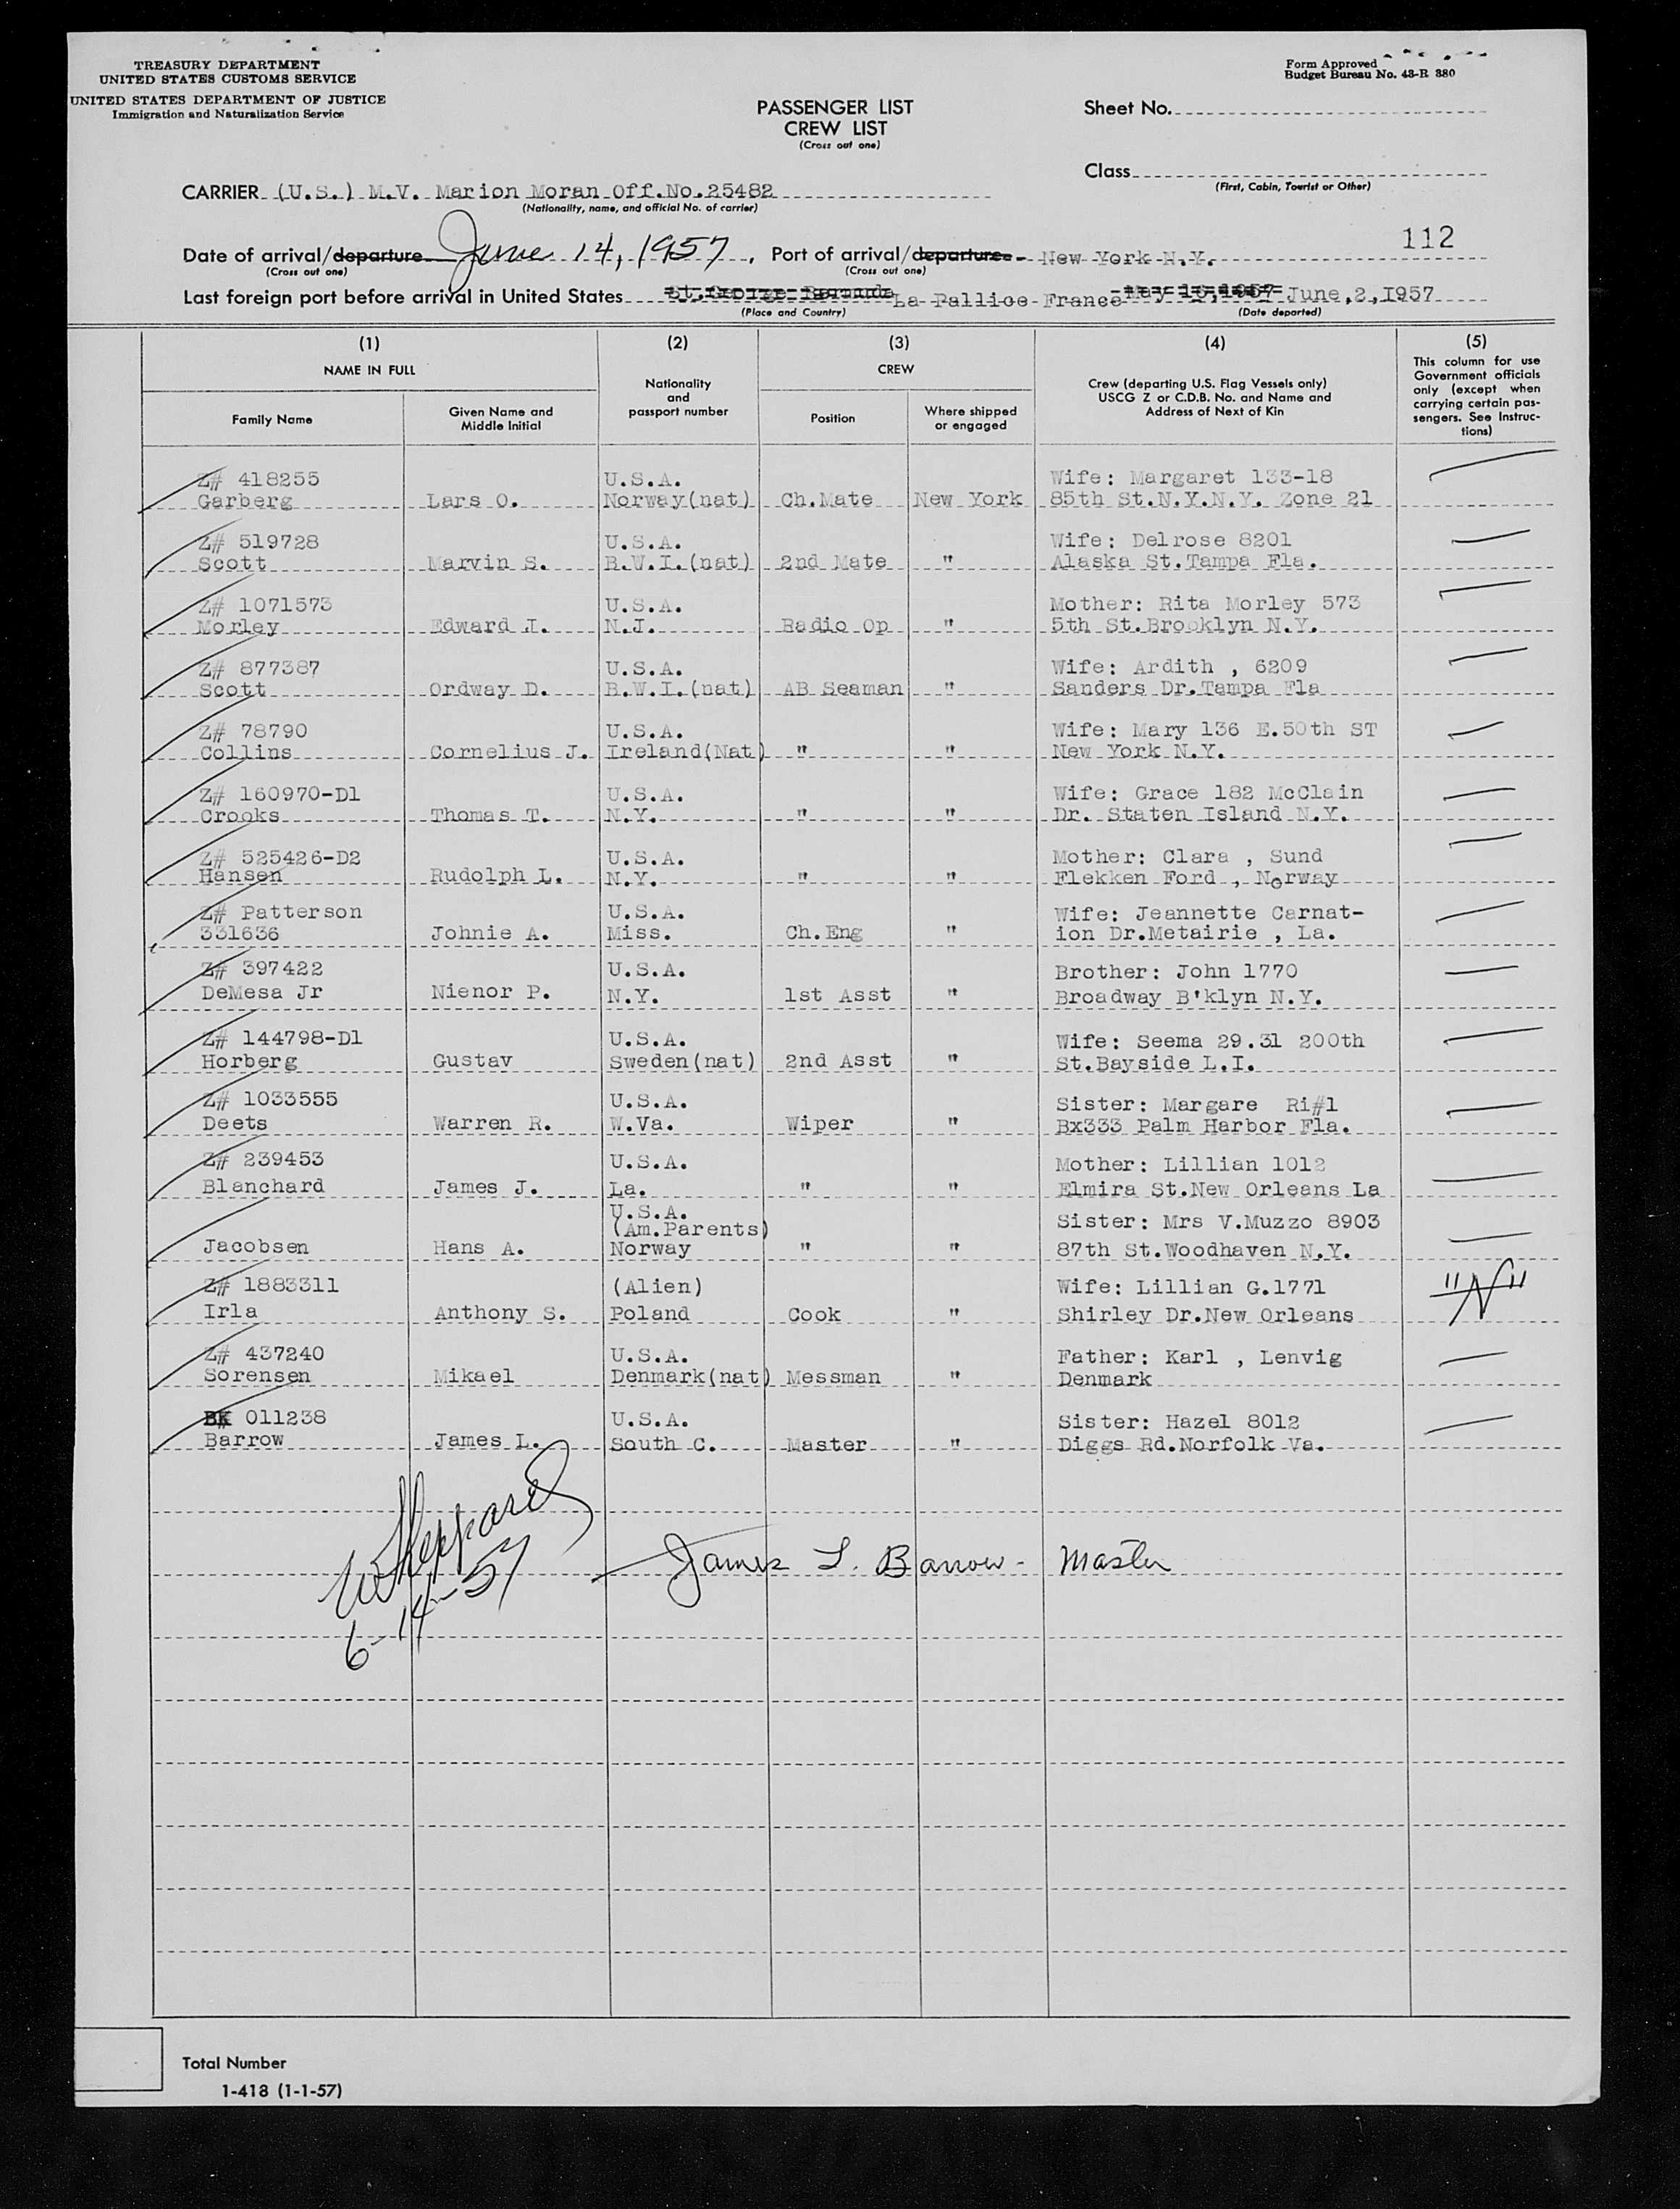 TREASURY DEPARTMENT
UNITED STATES CUSTOMS SERVICE
UNITED STATES DEPARTMENT OF JUSTICE
Immigration and Naturalization Service
Form Approved
Budget Bureau No. 43-R 380
PASSENGER LIST
CREW LIST
(Cross out one)
Sheet No.
Class
(First, Cabin, Tourist or Other)
CARRIER (U.S.) M.V. Marion Moran Off.No.25482
(Nationality, name, and official No. of carrier)
112
Date of arrival/departure June 14, 1957, Port of arrival/departure New York N.Y.
(Cross out one) (Cross out one)
Last foreign port before arrival in United States St.George Bermuda La Pallice France May 16,1957 June,2,1957
(Place and Country) (Date departed)
(1) (2) (3) (4) (5)
NAME IN FULL
Family Name
Given Name and
Middle Initial
Nationality
and
passport number
CREW
Position
Where shipped
or engaged
Crew (departing U.S. Flag Vessels only)
USCG Z or C.D.B. No. and Name and
Address of Next of Kin
This column for use
Government officials
only (except when
carrying certain pas-
sengers. See Instruc-
tions)
Z# 418255 U.S.A. Wife: Margaret 133-18
Garberg Lars O. Norway(nat) Ch.Mate New York 85th St.N.Y.N.Y. Zone 21
Z# 519728 U.S.A. Wife: Delrose 8201
Scott Marvin S. B.W.I.(nat) 2nd Mate " Alaska St.Tampa Fla.
Z# 1071573 U.S.A. Mother: Rita Morley 573
Morley Edward J. N.J. Radio Op " 5th St.Brooklyn N.Y.
Z# 877387 U.S.A. Wife: Ardith , 6209
Scott Ordway D. B.W.I.(nat) AB Seaman " Sanders Dr.Tampa Fla
Z# 78790 U.S.A. Wife: Mary 136 E.50th ST
Collins Cornelius J. Ireland(Nat) " " New York N.Y.
Z# 160970-D1 U.S.A. Wife: Grace 182 McClain
Crooks Thomas T. N.Y. " " Dr. Staten Island N.Y.
Z# 525426-D2 U.S.A. Mother: Clara , Sund
Hansen Rudolph L. N.Y. " " Flekken Ford , Norway
Z# Patterson U.S.A. Wife: Jeannette Carnat-
331636 Johnie A. Miss. Ch.Eng " ion Dr.Metairie , La.
Z# 397422 U.S.A. Brother: John 1770
DeMesa Jr Nienor P. N.Y. 1st Asst " Broadway B'klyn N.Y.
Z# 144798-D1 U.S.A. Wife: Seema 29.31 200th
Horberg Gustav Sweden(nat) 2nd Asst " St.Bayside L.I.
Z# 1033555 U.S.A. Sister: Margare Ri#1
Deets Warren R. W.Va. Wiper " Bx333 Palm Harbor Fla.
Z# 239453 U.S.A. Mother: Lillian 1012
Blanchard James J. La. " " Elmira St.New Orleans La
U.S.A.
(Am.Parents) Sister: Mrs V.Muzzo 8903
Jacobsen Hans A. Norway " " 87th St.Woodhaven N.Y.
Z# 1883311 (Alien) Wife: Lillian G.1771 "N"
Irla Anthony S. Poland Cook " Shirley Dr.New Orleans
Z# 437240 U.S.A. Father: Karl , Lenvig
Sorensen Mikael Denmark(nat) Messman " Denmark
BK 011238 U.S.A. Sister: Hazel 8012
Barrow James L. South C. Master " Diggs Rd.Norfolk Va.
W Sheppard
6-14-57
James L. Barrow - Master
Total Number
1-418 (1-1-57)